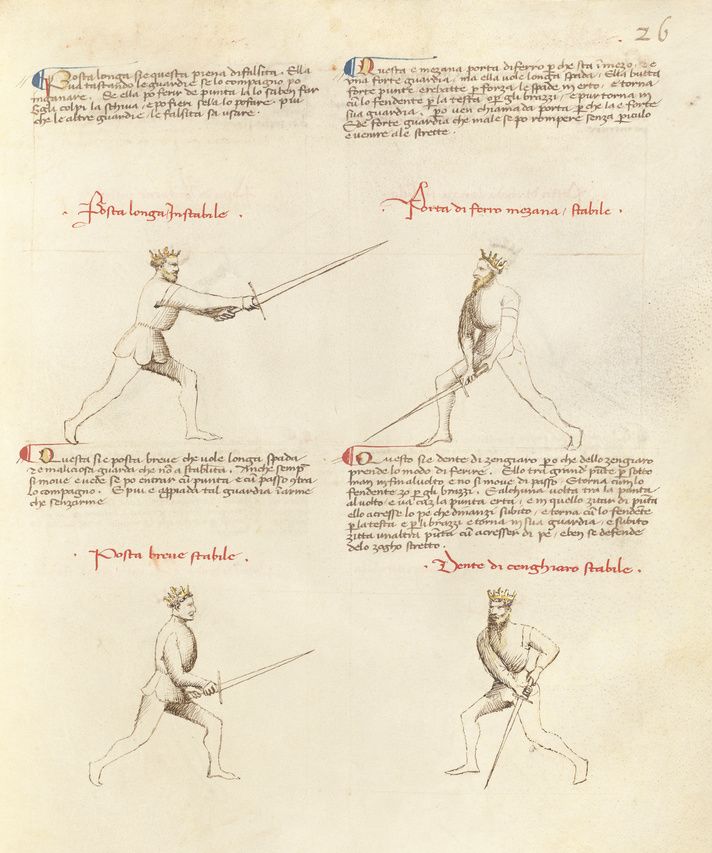 26
Posta longa sie questa piena di falsita. Ella
va tastando le guardie se lo compagno po
inganare. Se ella po ferir de punta la lo saben far
E gli colpi la schiva, e po fieri se la lo po fare. piu
che le altre guardie le falsita sa usare.
Posta longa Instabile.
Questa e mezana porta di ferro p che sta i mezo. e e
una forte guardia, ma ella vole longa spada. Ella butta
forte punte e rebatte p forza le spade in erto, e torna
cu lo fendente p la testa o p gli brazzi, e pur torna in
sua guardia. po ven chiamada porta p che la e forte
E de forte guardia che male se po rompere senza piculo
e venire ale strette.
Porta di ferro mezana, stabile.
Questa sie posta breve che vole longa spada
e e maliciosa guarda che no a stabilita. Anche semp
si move e vede se po entrar cu punta e cu passo contra
lo compagno. E piu e appiada tal guardia i arme
che senz arme
Posta breve stabile.
Questo sie dente di zengiaro po che dello zengiaro
prende lo modo di ferire. Ello tra grand pute p sotto
man in fin al volto e no si move di passo. E torna cu lo
fendente zo p gli brazzi. E alchuna volta tra la punta
al volto e va cu la punta erta, e in quello zitar di puta
ello acresse lo pe che dinanzi subito, e torna cu lo fendente
p la testa e p li brazzi e torna in sua guardia, e subito
zitta un altra puta cu acresser di pe, e ben se defende
delo zogho stretto.
Dente di cenghiaro stabile.